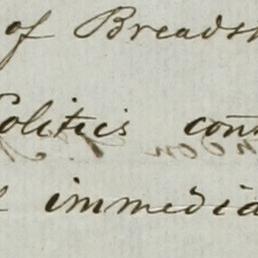 of Breadst
Politics con
immedia